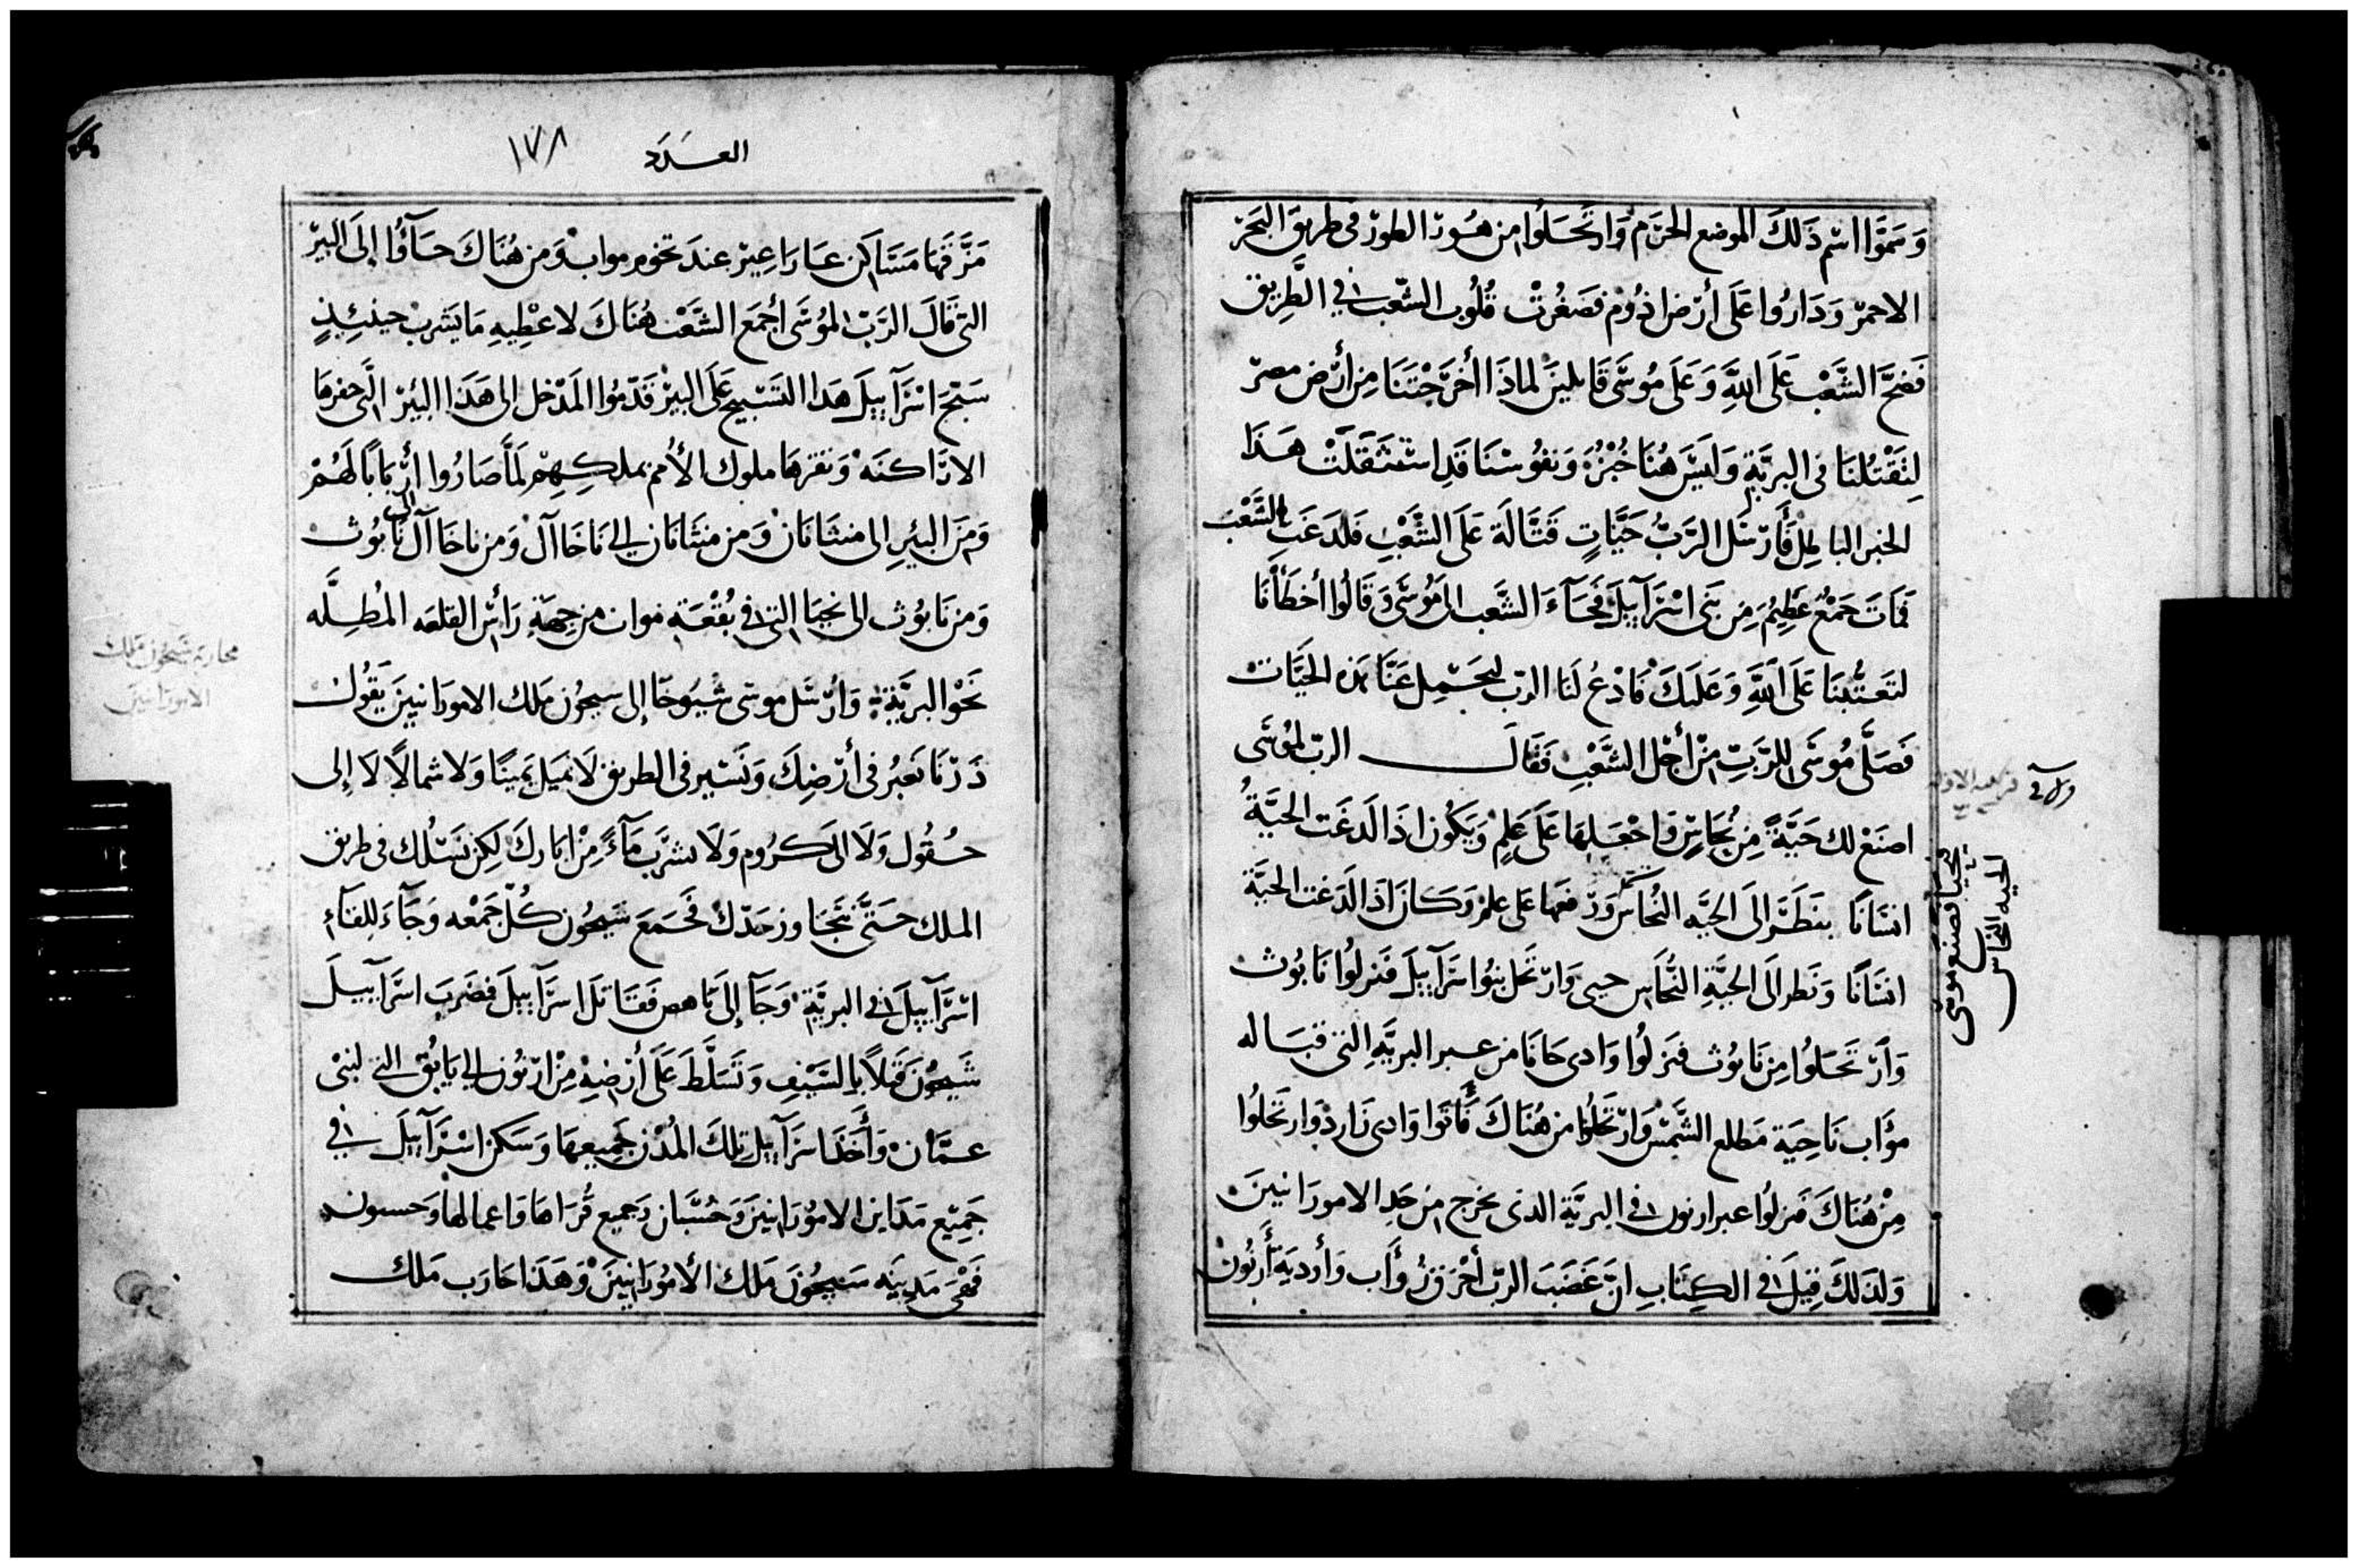 وَسَمَّوا اسْم ذَلكَ الموضع الحَرَم وَارتَحَلُوا من هُور الطور فى طريق البَحَر
الاحمر وَدَارُوا عَلَى أرْض اذُوم فصَغُرتْ قُلُوب الشّعب فى الطَّرِيق
فَضحَّ الشَّعْب عَلَى اللهِ وَعَلَى مُوسَى قَايلينَ لماذَا أخرَجْتَنَا مِن أرْض مصر
لِتَقْتُلنَا فى البريَّةِ وَلَيسَ هُنَا خُبْزُ وَنفُوسْنَا قَدِ اسْتَثقَلَتْ هَذَا
الخبز الباطِل فَأَرْسَل الرَّبُّ حَيَّاتٍ قَتَّالَة عَلَى الشَّعْبِ فلَدَغَت الشَّعْبَ
فمَاتَ جَمْعُ عَظِيمُ مِن بَنى اسْرَآييلَ فَجَآءَ الشَّعب الى مُوسَى وَقَالُوا أخطَأْنَا
لتَعَتُّبنَا عَلَى اللهَ وَعَليكَ فَادْعُ لَنَا الربّ ليحَسِّل عَنَّا هذه الحَيَّات
فَصَلَّى مُوسَى للرَّبّ مِنْ أجْل الشَّعْبِ فَقَالَ الربّ لمُوسَى
اصنَعْ لك حَيَّةً مِن نُحَاسٍ وَاجْعَلهَا عَلَى عَلمٍ وَيَكُون اذَا لَدغَت الحيَّةُ
انسَانًا ينظَر الَى الحيَّه النُحَاس وَرفعهَا عَلى علم وَكَانَ اذَا لَدَغت الحيَّة
انسَانًا وَنَظر الَى الحيَّةِ النُّحَاس حيى وَارْتحَل بنُوا اسْرَآييلَ فَنزلُوا نَابُوث
وَارْتَحَلُوا مِن نَابُوث فنَزلُوا وَادى حَانَا من عبر البريَّهِ التى قبَاله
مؤَاب نَاحِيَة مَطلع الشَّمْس وَارْتحَلُوا من هُنَاكَ فَأَتَوا وَادى زَارد وَارتَحَلُوا
مِنْ هُنَاكَ فنزلُوا عبر ارنون فى البريَّة الذى يخرج من حَد الامورَانيينَ
وَلذَلكَ قِيلَ فى الكِتَابِ انَّ غَضَبَ الربّ أحْرَق زُؤَاب وَأوديَة أَرنُون
وله
يحيا لصنع موسى
الحيه النحاس
العَدَد ١٧٨
مَزَّقهَا مَسَاكن عَارَاعِير عندَ تخوم مواب وَمن هُنَاكَ جَآؤُا إلَى البير
التى قَالَ الرَّبّ لمُوسَى أجْمَع الشَّعْبْ هُنَاكَ لاعْطِيهِ مَا يشرب حينئِذٍ
سَبَّحَ اسْرَآييلَ هَذا التَّسْبيح عَلَى البيرْ قَدّمُوا المَدْخل الى هَذَا البُئِر الَّتى حفرهَا
الارَّاكنَه وَنقرهَا ملوك الأمم بملكِهِم لَمَّا صَارُوا أرْبَابًا لَهُمْ
وَمنَ البُئرِ الى منثانَان وَمن منثانَان الى نَاخَاآل وَمن ناخَاآل الى نَابُوث
وَمن نَابُوث الى نجبَا التى فى بُقْعَةِ مواب من جِهَةِ رَأس القلعَه المُطِلَّه
نَحْو البريَّةِ وَأرْسَل موسى شُيُوخًا إلى سيحُون مَلك الامورَانيينَ يَقُولُ
ذَرْنَا نَعبُر فى أرْضِكَ وَنَسير فى الطريق لَا نميَل يَمينًا وَلا شمالاً لَا إلى
حُقُول وَلَا الى كرُوم وَلَا نشرَب مَآءً مِنْ ابَارك لَكِن نَسْلُك فى طريق
الملك حَتَّى نتجَاوز حَدّك فَجَمَعَ سَيحُون كُلّ جَمْعه وَجَآءَ لِلقآءِ
اسْرَآييلَ فى البريَّة وَجَآ إلَى يَاهص فَقَاتلَ اسرَآييلَ فضَربَ اسرَآييلَ
شَيحُونَ قَتْلاً بالسَّيْفِ وَتَسَلَّطَ عَلَى أرْضِهْ مِنْ ارْنُون الى يَابُق التى لبَنى
عَمَّانْ وَأَخَذ اسرَآييل تِلكَ المُدُن جَميعهَا وَسَكن اسْرَآييلَ فى
جَمِيْع مَدَاين الامُورَانيينَ وَحُسْبَان وَجميع قُرَاهَا وَاعمالهَا وَحسبون
فَهْىَ مَدِينَه سَيحُونَ مَلك الأمُورَانيِينَ وَهَذَا حَارَب مَلك
محاربة سيحون ملك
الامورانيين